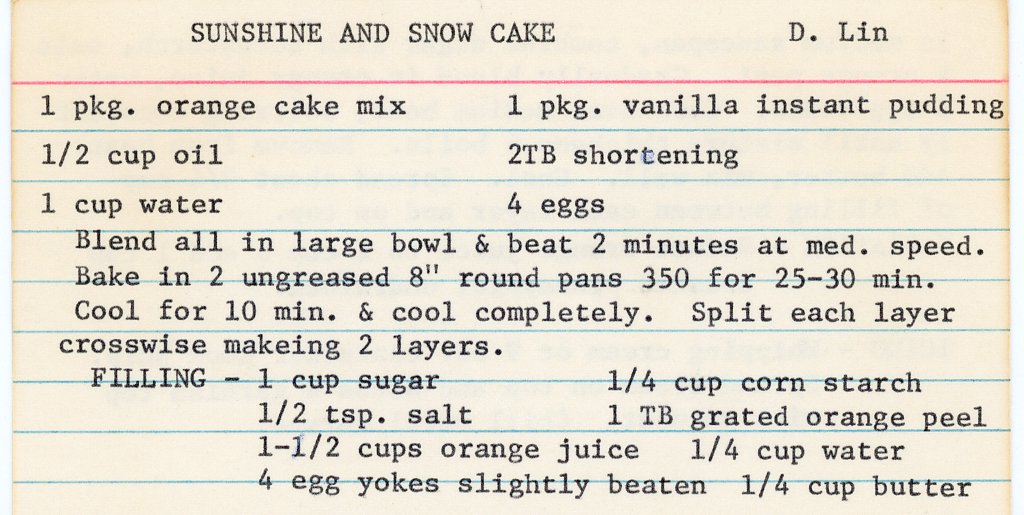 SUNSHINE AND SNOW CAKE D. Lin
1 pkg. orange cake mix 1 pkg. vanilla instant pudding
1/2 cup oil 2TB shortening
1 cup water 4 eggs
Blend all in large bowl & beat 2 minutes at med. speed.
Bake in 2 ungreased 8" round pans 350 for 25-30 min.
Cool for 10 min. & cool completely. Split each layer
crosswise makeing 2 layers.
FILLING - 1 cup sugar 1/4 cup corn starch
1/2 tsp. salt 1 TB grated orange peel
1-1/2 cups orange juice 1/4 cup water
4 egg yokes slightly beaten 1/4 cup butter